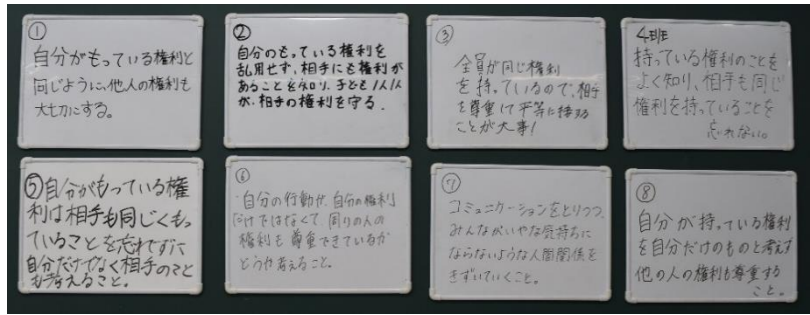 ①
自分がもっている権利と
同じように、他人の権利も
大切にする。
②
自分のもっている権利を
乱用せず、相手にも権利が
あることを知り、子ども1人1人
が、相手の権利を守る。
③
全員が同じ権利
を持っているので、相手
を尊重して平等に接する
ことが大事!
4班
持っている権利のことを
よく知り、相手も同じ
権利を持っていることを
忘れない。
⑤自分がもっている権
利は相手も同じくもっ
ていることを忘れずに
自分だけでなく相手のこと
も考えること。
⑥
自分の行動が、自分の権利
だけではなくて、周りの人の
権利も尊重できているか
どうか考えること。
⑦
コミュニケーションをとりつつ、
みんながいやな気持ちに
ならないような人間関係を
きずいていくこと。
⑧
自分が持っている権利
を自分だけのものと考えず
他の人の権利も尊重する
こと。